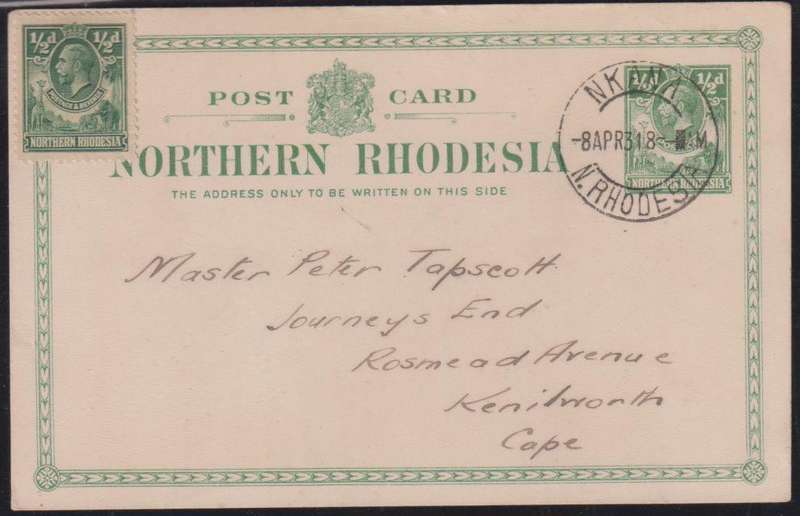 ½d ½d
POSTAGE & REVENUE
NORTHERN RHODESIA
POST CARD
NORTHERN RHODESIA
THE ADDRESS ONLY TO BE WRITTEN ON THIS SIDE
½d ½d
NORTHERN RHODESIA
NKANA
-8APR31 8- M.
N. RHODESIA
Master Peter Tapscott
Journeys End
Rosmead Avenue
Kenilworth
Cape